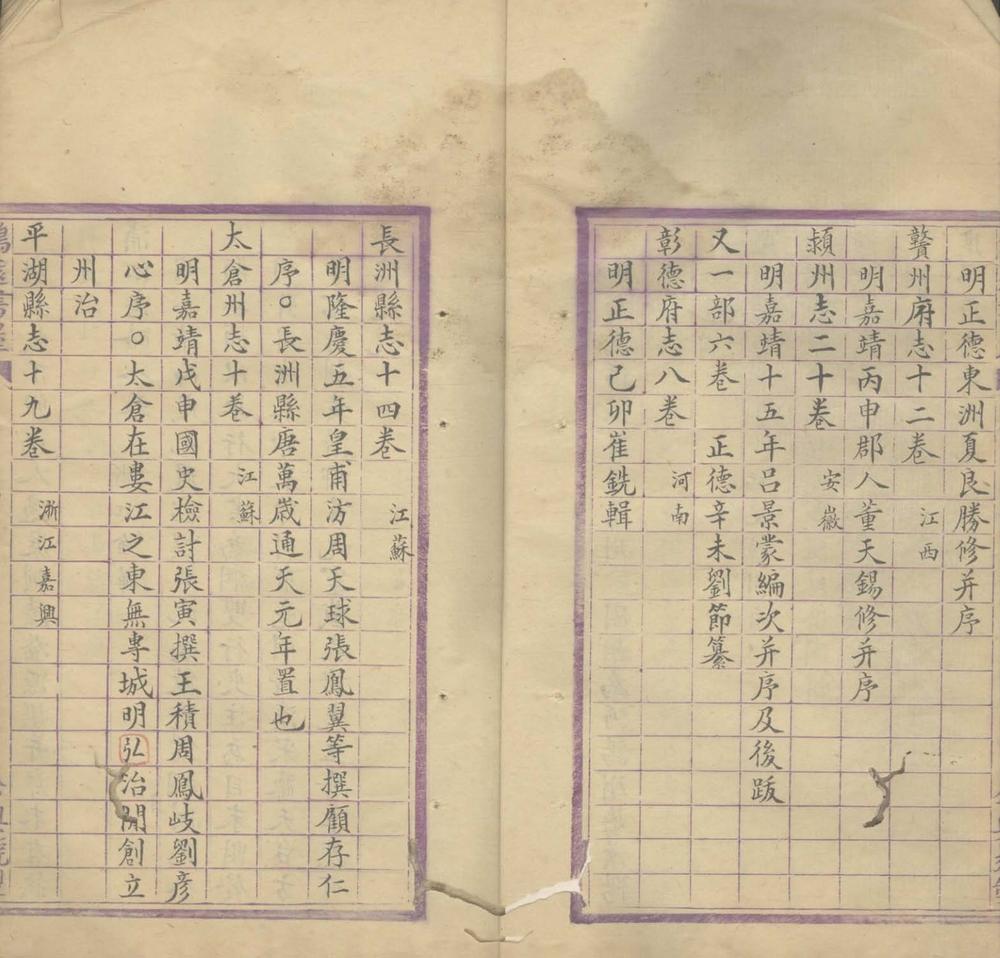 明正德東洲夏良勝修并序
贛州府志十二卷 江西
明嘉靖丙申郡人董天錫修并序
潁州志二十卷 安徽
明嘉靖十五年呂景蒙編次并序及後跋
又一部六卷 正德辛未劉節纂
彰德府志八卷 河南
明正德己卯崔銑輯
長洲縣志十四卷 江蘇
明隆慶五年皇甫汸周天球張鳳翼等撰顧存仁
序○長洲縣唐萬歲通天元年置也
太倉州志十卷 江蘇
明嘉靖戊申國史檢討張寅撰王積周鳳岐劉彥
心序○太倉在婁江之東無專城明弘治間創立
州治
平湖縣志十九卷 浙江嘉興